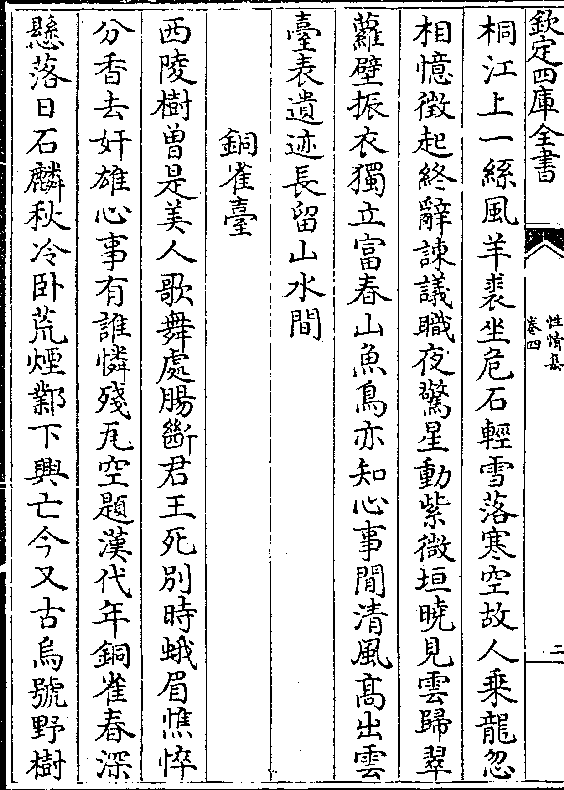 欽定四庫全書
性情集
卷四
二
桐江上一絲風羊裘坐危石輕雪落寒空故人乗龍忽
相憶徴起終辭諫議職夜驚星動紫微垣曉見雲歸翠
蘿壁振衣獨立富春山魚鳥亦知心事閒清風髙出雲
臺表遺迹長留山水間
銅雀臺
西陵樹曾是美人歌舞處腸斷君王死別時蛾眉憔悴
分香去奸雄心事有誰憐殘瓦空題漢代年銅雀春深
懸落日石麟秋冷卧荒煙鄴下興亡今又古烏號野樹